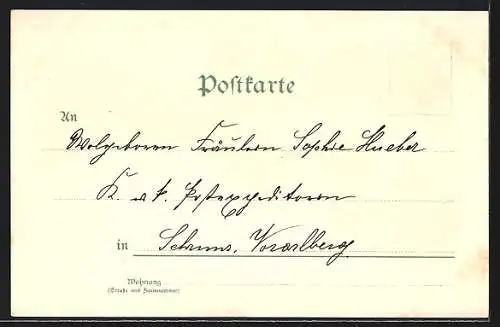 Postkarte
An
Wolgeboren Fräulein Sophie Hueber
K. u. k. Postexpeditorin
in Schruns, Vorarlberg
Wohnung
(Straße und Hausnummer)